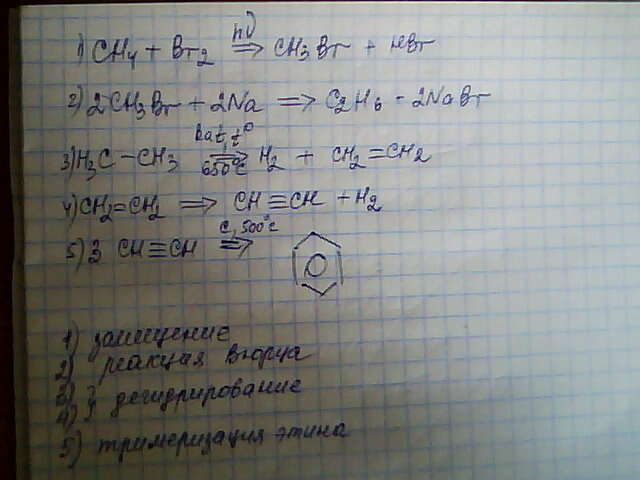 1) CH4 + Br2 hν ⇒ CH3Br + HBr
2) 2CH3Br + 2Na ⇒ C2H6 - 2NaBr
3) H3C - CH3 kat, t° ⇒ 650°C H2 + CH2=CH2
4) CH2=CH2 ⇒ CH≡CH + H2
5) 3 CH≡CH C, 500°C ⇒
1) замещение
2) реакция Вюрца
3)
4) } дегидрирование
5) тримеризация этина